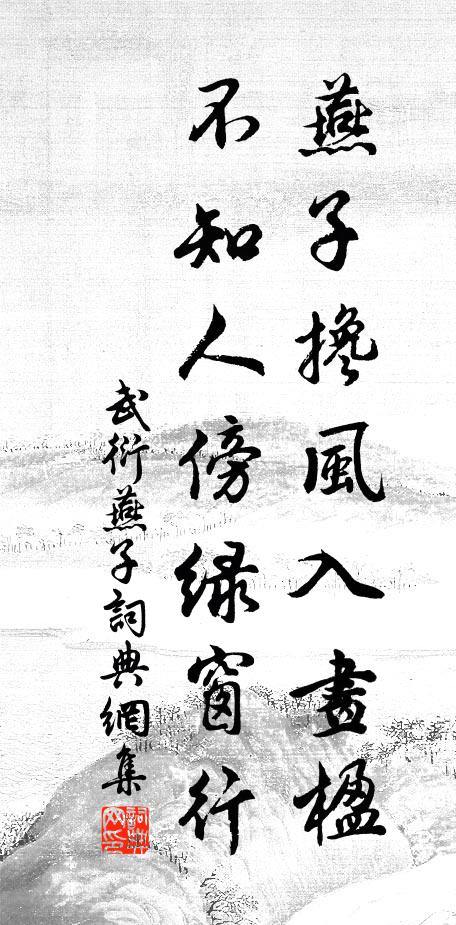 燕子搀風入畫楹
不知人傍緑窗行
武衍燕子詞典網集